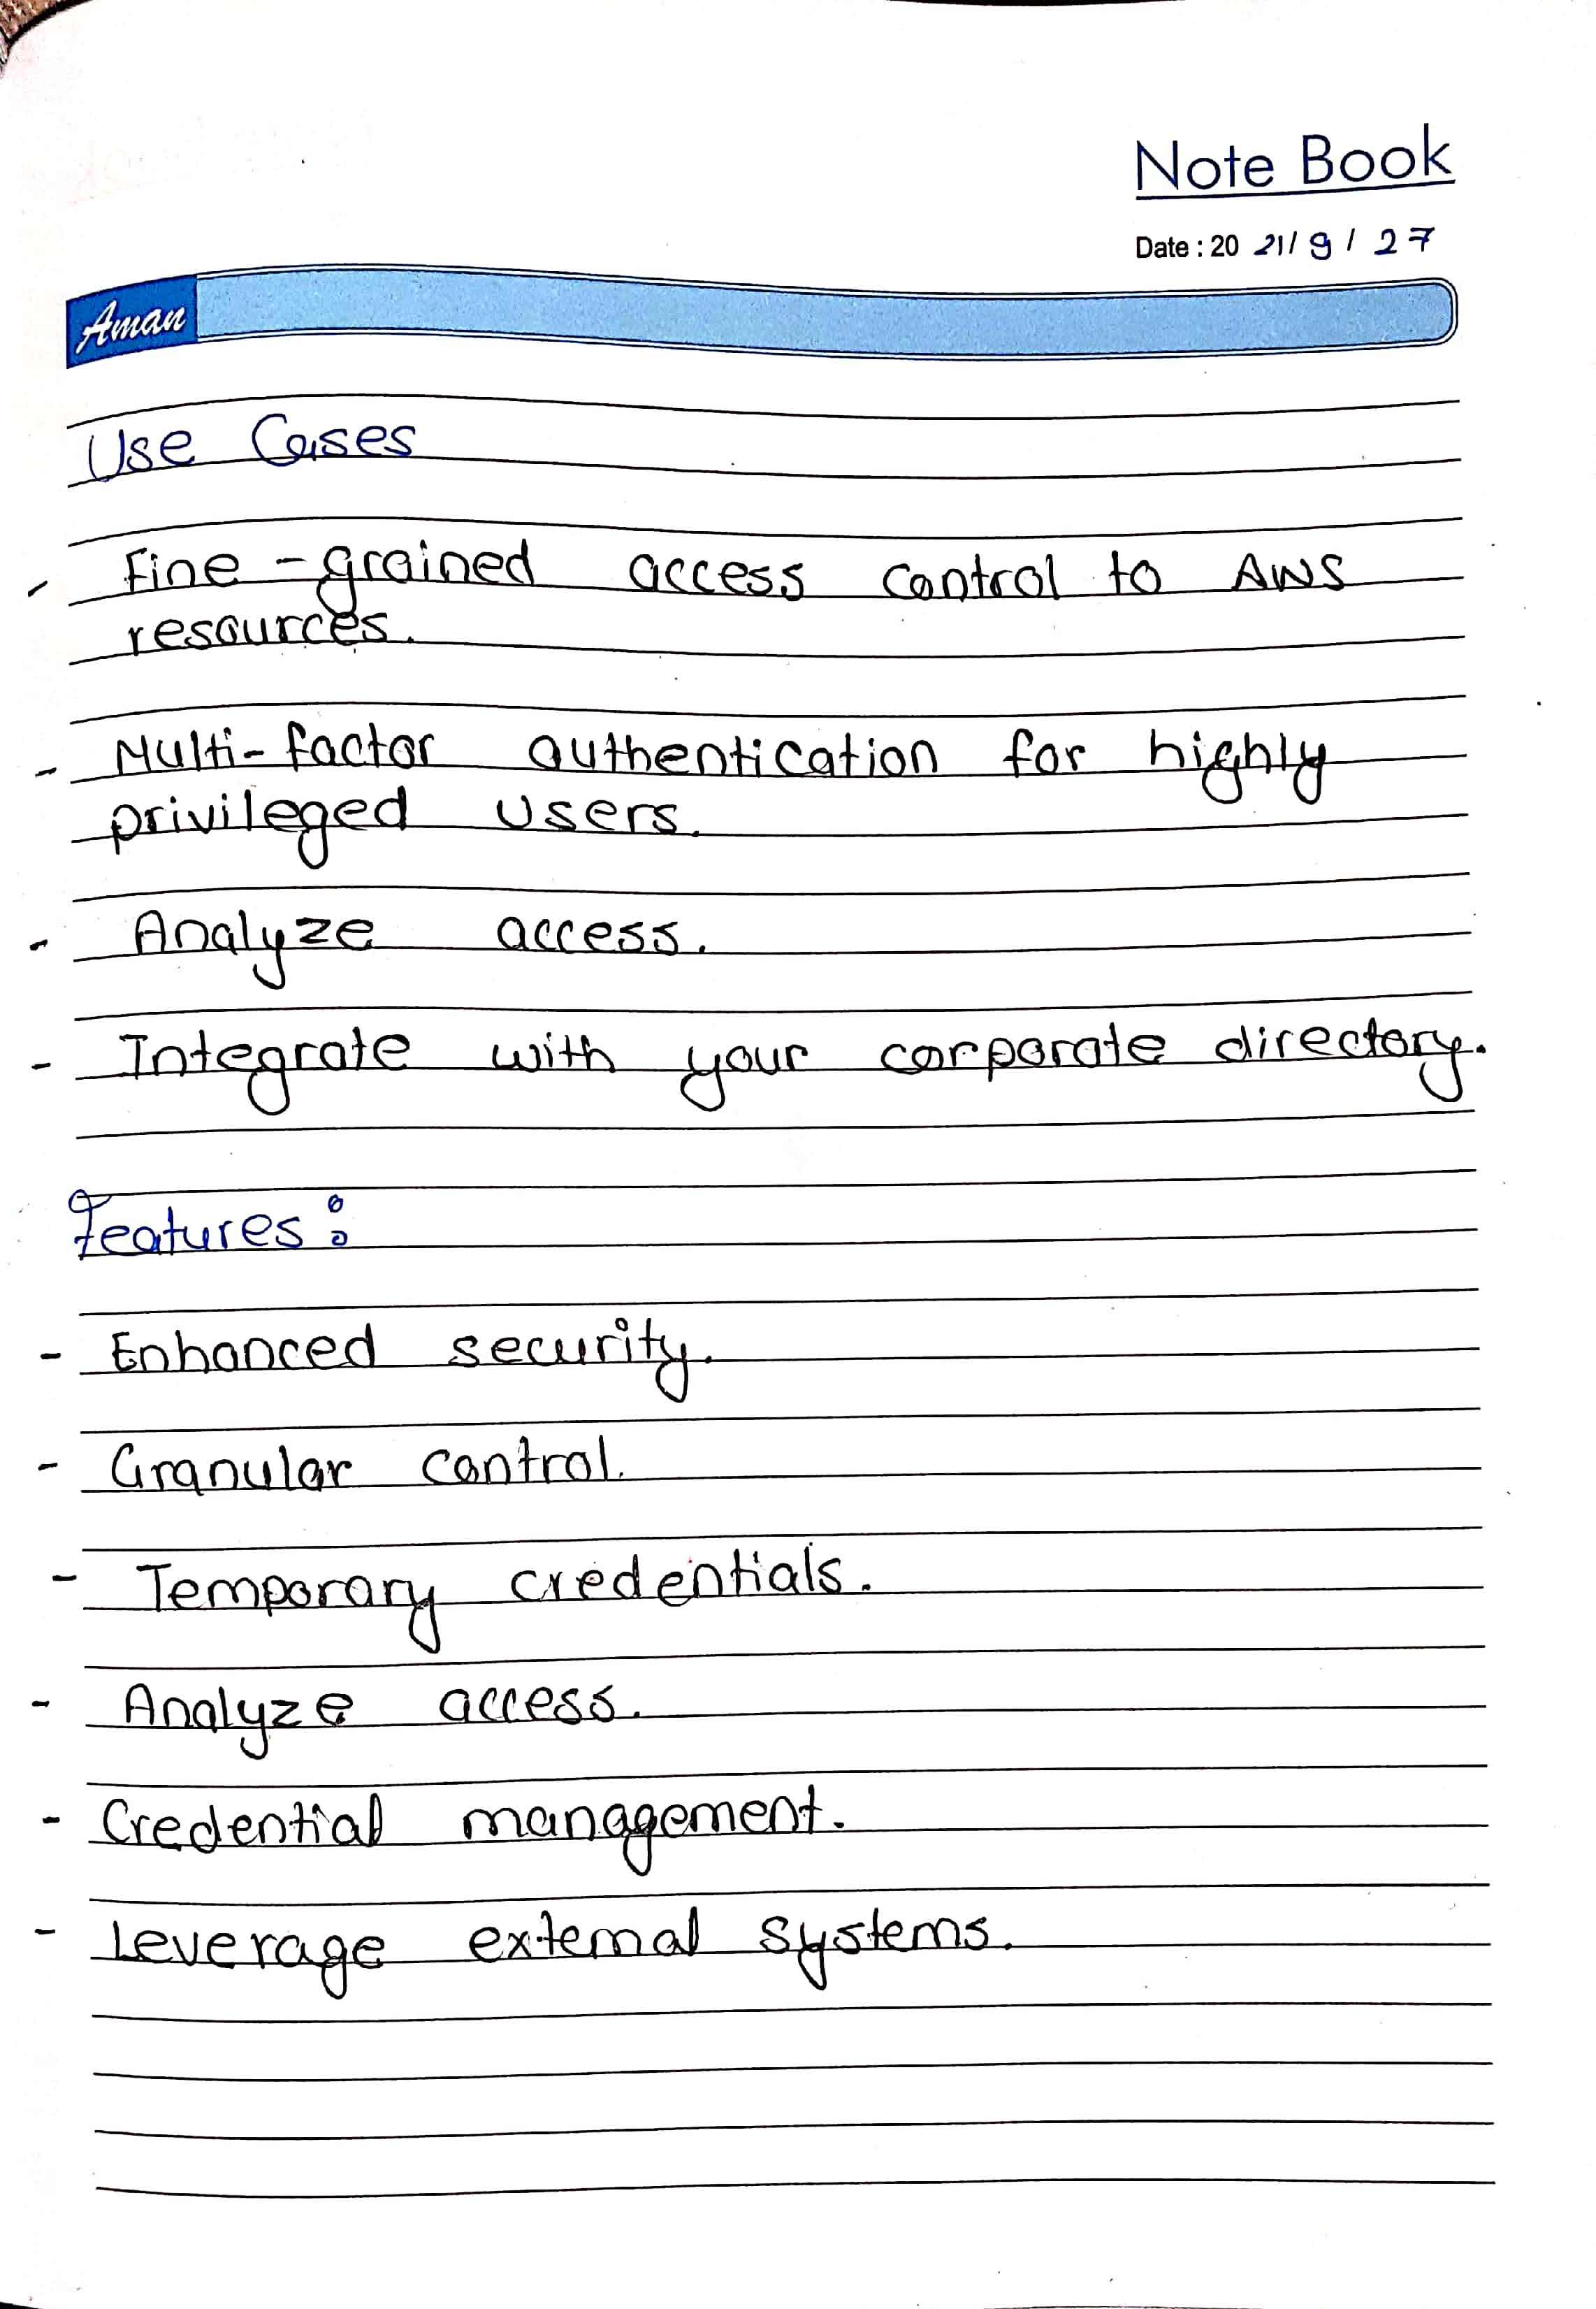 Note Book
Date : 20 21/ 9 / 27
Aman
Use Cases
- Fine - grained access control to AWS
resources.
- Multi- factor authentication for highly
privileged users.
- Analyze access.
- Integrate with your corporate directory.
Features :
- Enhanced security.
- Granular control.
- Temporary credentials.
- Analyze access.
- Credential management.
- Leverage external systems.